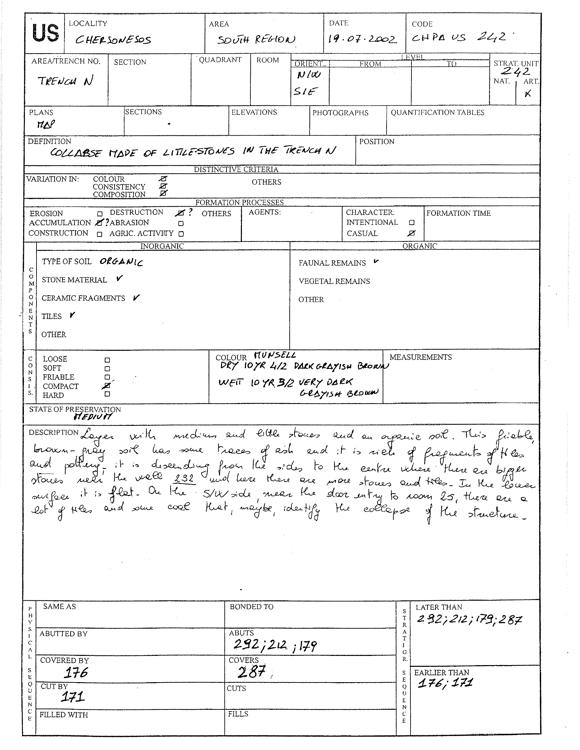 US
LOCALITY
CHERSONESOS
AREA
SOUTH REGION
DATE
19.07.2002
CODE
CHPA US 242
AREA/TRENCH NO.
TRENCH N
SECTION
QUADRANT
ROOM
LEVEL
ORIENT.
N/W
S/E
FROM
TO
STRAT. UNIT
242
NAT.
ART.
X
PLANS
MAP
SECTIONS
ELEVATIONS
PHOTOGRAPHS
QUANTIFICATION TABLES
DEFINITION
COLLABSE MADE OF LITLESTONES IN THE TRENCH N
POSITION
DISTINCTIVE CRITERIA
VARIATION IN: COLOUR ☑
CONSISTENCY ☑
COMPOSITION ☑
OTHERS
FORMATION PROCESSES
EROSION ☐ DESTRUCTION ☑? OTHERS
ACCUMULATION ☑? ABRASION ☐
CONSTRUCTION ☐ AGRIC. ACTIVITY ☐
AGENTS:
CHARACTER:
INTENTIONAL ☐
CASUAL ☑
FORMATION TIME
COMPONENTS
INORGANIC
TYPE OF SOIL ORGANIC
STONE MATERIAL ✓
CERAMIC FRAGMENTS ✓
TILES ✓
OTHER
ORGANIC
FAUNAL REMAINS ✓
VEGETAL REMAINS
OTHER
CONSIS.
LOOSE ☐
SOFT ☐
FRIABLE ☐
COMPACT ☑
HARD ☐
COLOUR MUNSELL
DRY 10YR 4/2 DARK GRAYISH BROWN
WEIT 10YR 3/2 VERY DARK
GRAYISH BROWN
MEASUREMENTS
STATE OF PRESERVATION
MEDIUM
DESCRIPTION Layer with medium and little stones and an organic soil. This friable,
brown-gray soil has some traces of ash and it is rich of fragments of tiles
and pottery; it is discending from the sides to the centre where there are bigger
stones near the wall 232 and here there are more stones and tiles. In the lower
surface it is flat. On the S/W side, near the door entry to room 25, there are a
lot of tiles and some coal that, maybe, identify the collapse of the structure.
PHYSICAL SEQUENCE
SAME AS
BONDED TO
ABUTTED BY
ABUTS
292; 212; 179
COVERED BY
176
COVERS
287
CUT BY
171
CUTS
FILLED WITH
FILLS
STRATIGR. SEQUENCE
LATER THAN
292; 212; 179; 287
EARLIER THAN
176; 171